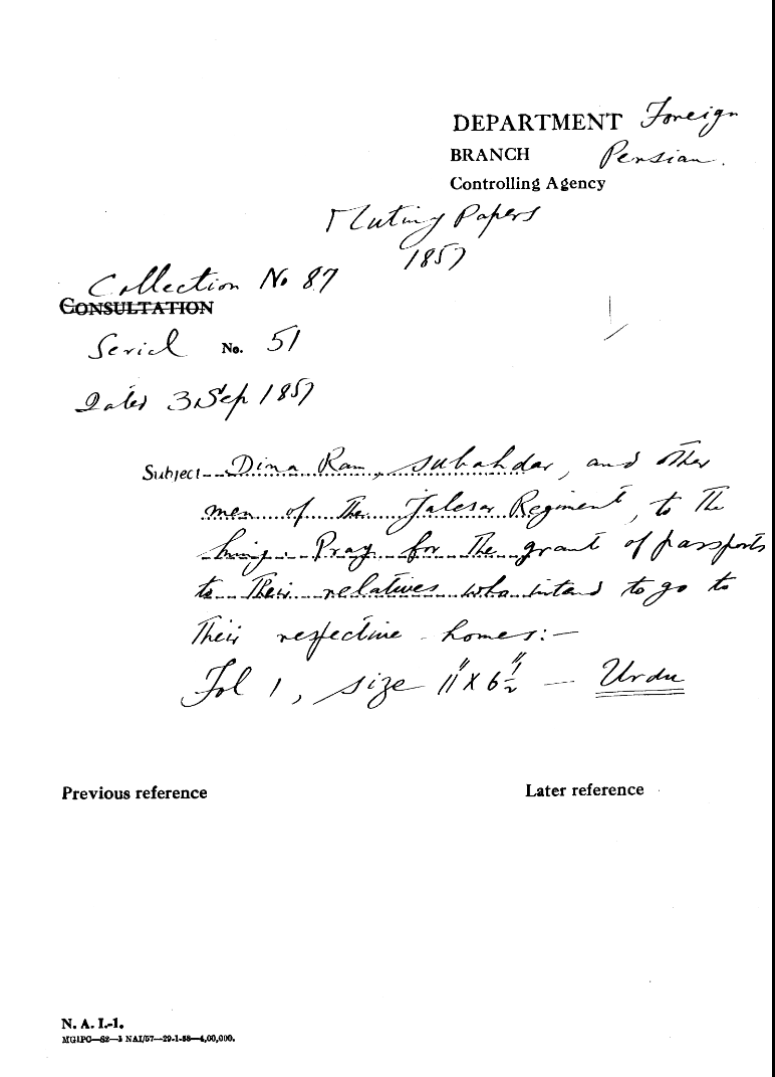 DEPARTMENT Foreign
BRANCH Persian.
Controlling Agency
Mutiny Papers
1857
Collection No 87
CONSULTATION
Serial No. 51
Dated 3 Sep 1857
Subject Dina Ram, subahdar, and other
men of the Jalesar Regiment, to the
king. Pray for the grant of passports
to their relatives who intend to go to
their respective homes:—
Fol 1, size 11" X 6½" — Urdu
Previous reference Later reference
N. A. I.-1.
MGIPC—S2—3 NAI/57—29-1-58—4,00,000.